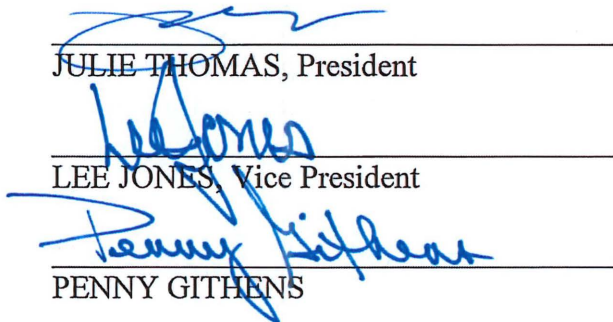 JULIE THOMAS, President
Lee Jones
LEE JONES, Vice President
Penny Githens
PENNY GITHENS